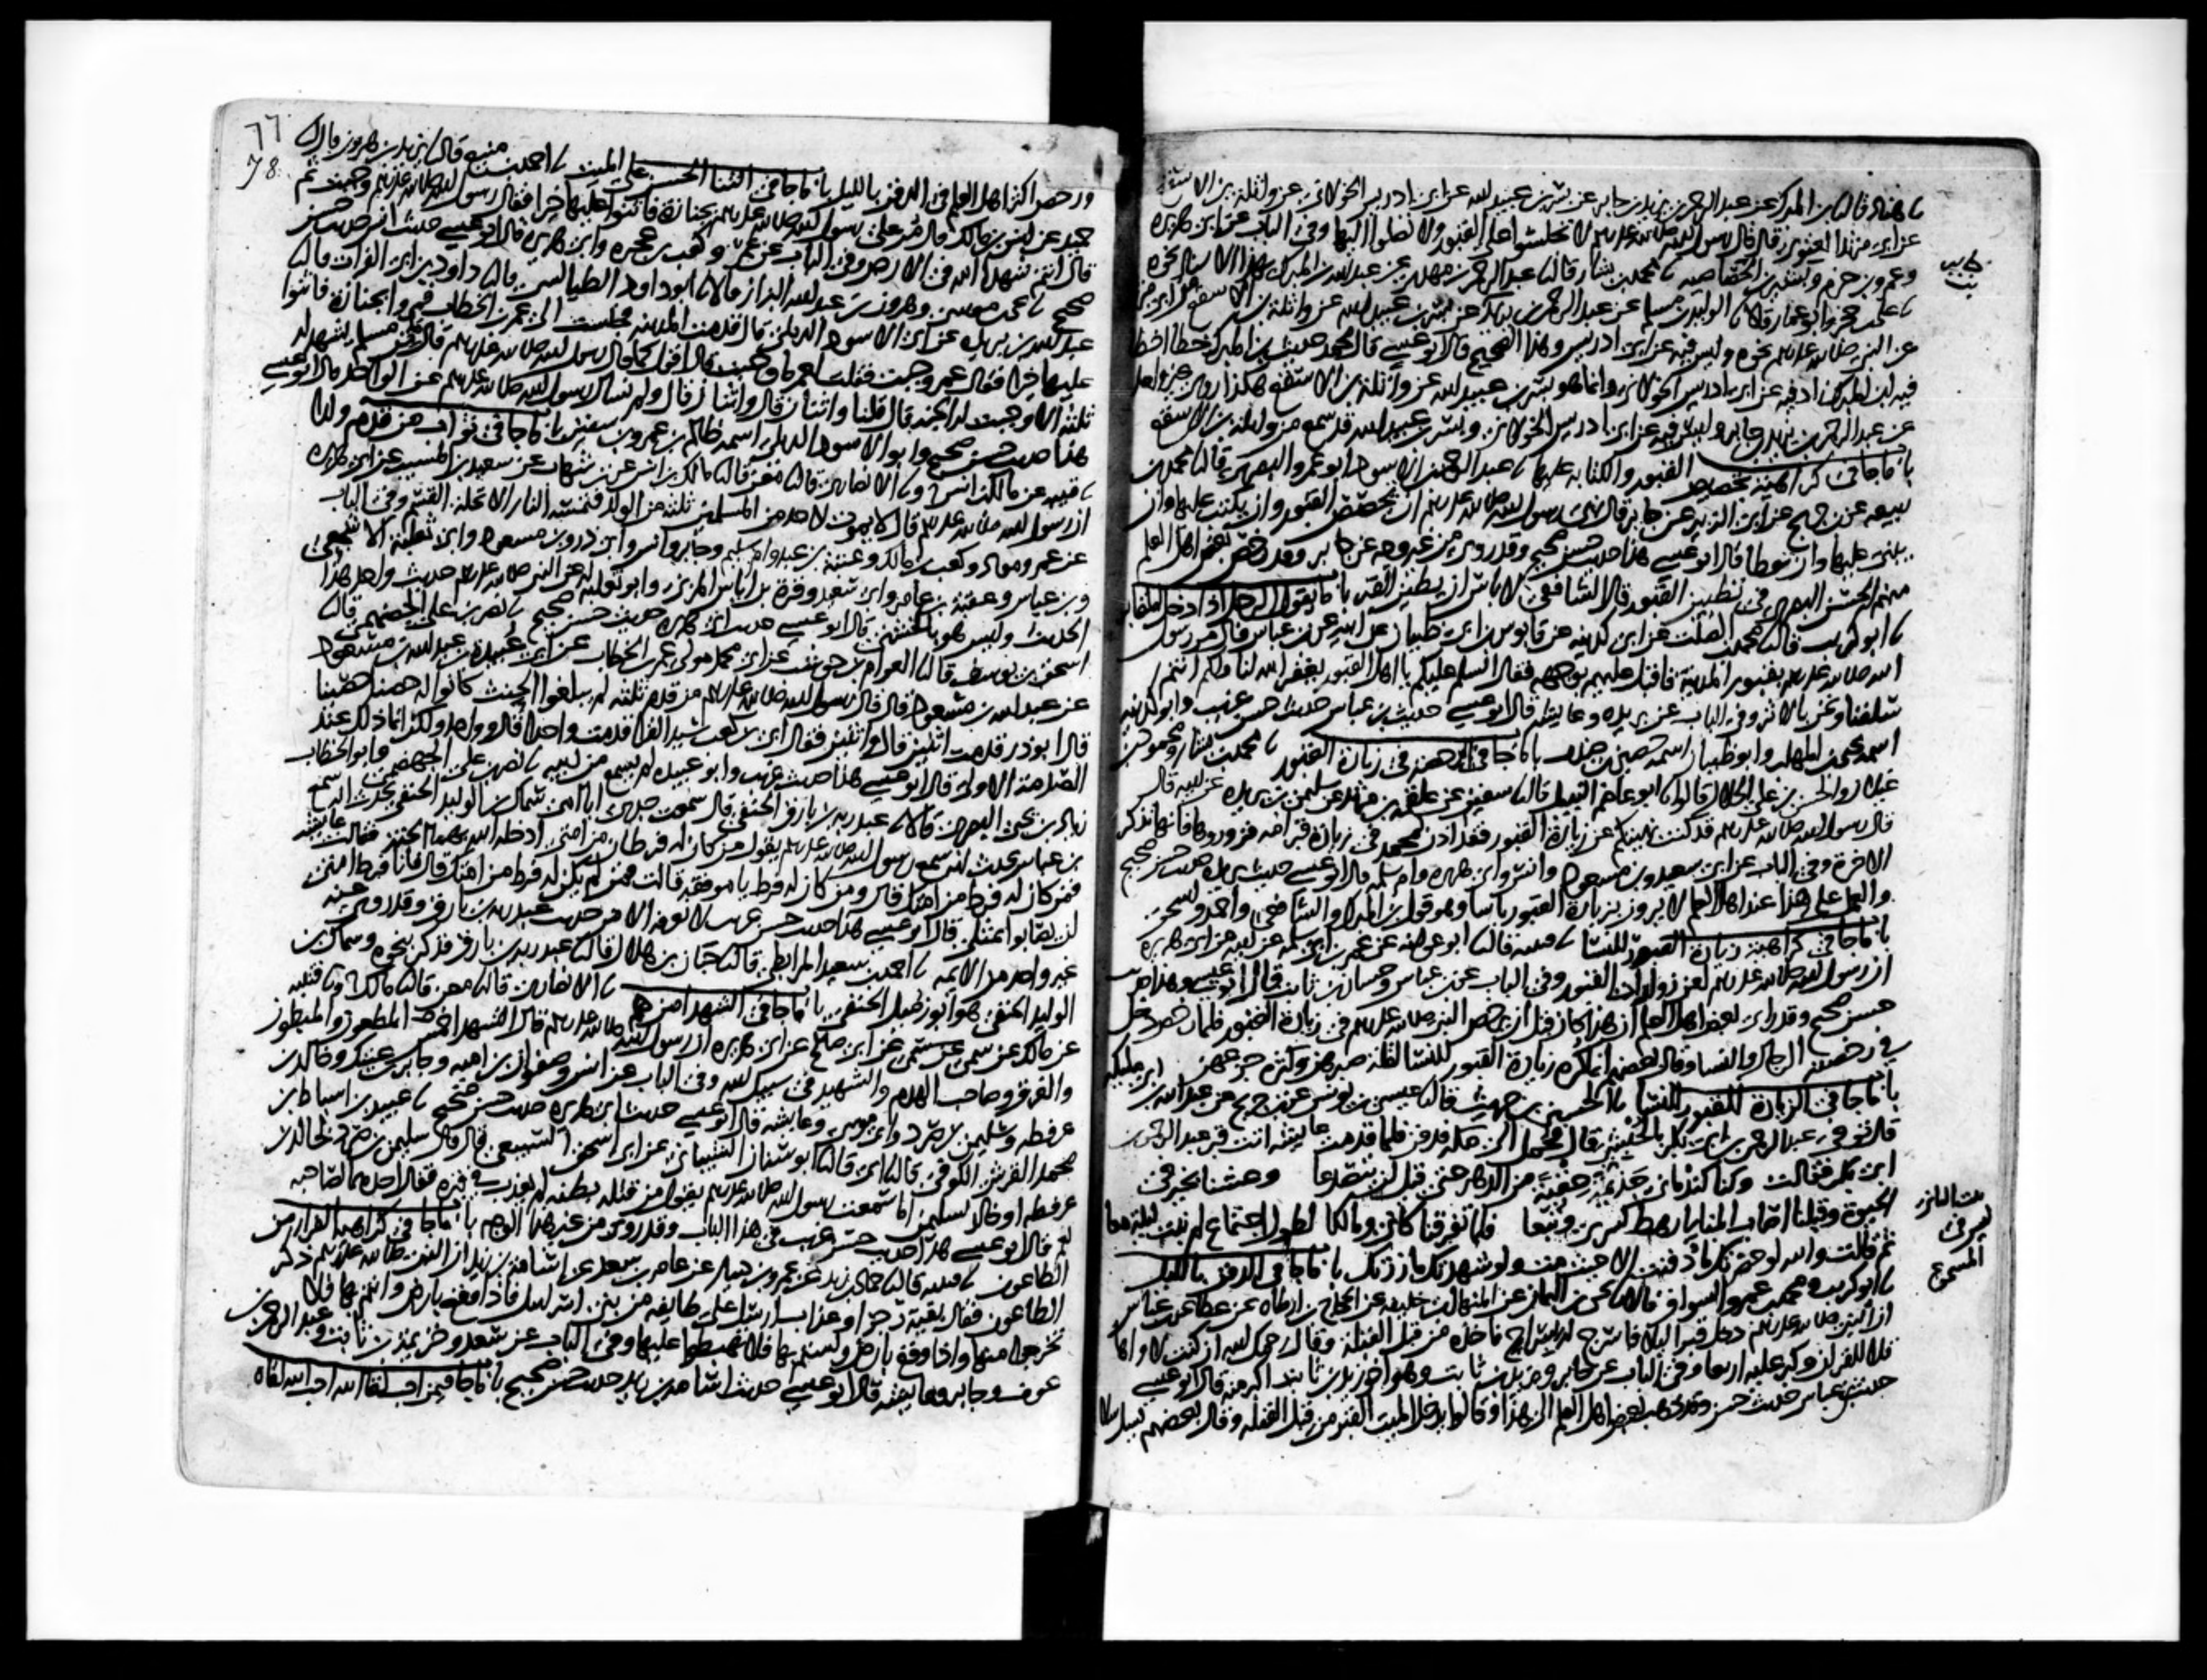 نا هناد قال نا بن المبرك عن عبد الرحمن بن يزيد بن جابر عن بسر بن عبيد الله عن ابي ادريس الخولاني عن واثلة بن الاسقع
عن ابي مرثد الغنوي قال قال رسول الله صلى الله عليه وسلم لا تجلسوا على القبور ولا تصلوا اليها وفي الباب عن ابي هريرة
وعمرو بن حزم وبشير بن الخصاصية نا محمد بن بشار قال نا عبد الرحمن بن مهدي عن عبد الله بن المبرك بهذا الاسناد نحوه
نا علي بن حجر وابو عمار قالا نا الوليد بن مسلم عن عبد الرحمن بن يزيد عن بسر بن عبيد الله عن واثلة بن الاسقع عن ابي مرثد
عن النبي صلى الله عليه وسلم نحوه وليس فيه عن ابي ادريس وهذا الصحيح قال ابو عيسى قال محمد حديث بن المبرك خطا اخطا
فيه ابن المبرك زاد فيه عن ابي ادريس الخولاني وانما هو بسر بن عبيد الله عن واثلة بن الاسقع هكذا روى غير واحد
عن عبد الرحمن بن يزيد بن جابر وليس فيه عن ابي ادريس الخولاني وبسر بن عبيد الله قد سمع من واثلة بن الاسقع
باب ما جا في كراهية تجصيص القبور والكتابة عليها نا عبد الرحمن بن الاسود ابو عمرو البصري قال نا محمد بن
ربيعة عن بن جريج عن ابي الزبير عن جابر قال نهى رسول الله صلى الله عليه وسلم ان تجصص القبور وان يكتب عليها وان
يبنى عليها وان توطا قال ابو عيسى هذا حديث حسن صحيح وقد روي من غير وجه عن جابر وقد رخص بعض اهل العلم
منهم الحسن البصري في تطيين القبور قال الشافعي لا باس ان يطين القبر باب ما يقول الرجل اذا دخل المقابر
نا ابو كريب قال نا محمد بن الصلت عن ابي كدينة عن قابوس بن ابي ظبيان عن ابيه عن بن عباس قال مر رسول
الله صلى الله عليه وسلم بقبور المدينة فاقبل عليهم بوجهه فقال السلم عليكم يا اهل القبور يغفر الله لنا ولكم انتم
سلفنا ونحن بالاثر وفي الباب عن بريدة وعايشة قال ابو عيسى حديث بن عباس حديث حسن غريب وابو كدينة
اسمه يحيى بن المهلب وابو ظبيان اسمه حصين بن جندب باب ما جا في الرخصة في زيارة القبور نا محمد بن بشار ومحمود بن
غيلان والحسن بن علي الخلال قالوا نا ابو عاصم النبيل قال نا سفين عن علقمة بن مرثد عن سليمن بن بريدة عن ابيه قال
قال رسول الله صلى الله عليه وسلم قد كنت نهيتكم عن زيارة القبور فقد اذن لمحمد في زيارة قبر امه فزوروها فانها تذكر
الاخرة وفي الباب عن ابي سعيد وبن مسعود وانس وابي هريرة وام سلمة قال ابو عيسى حديث بريدة حديث حسن صحيح
والعمل على هذا عند اهل العلم لا يرون بزيارة القبور باسا وهو قول بن المبرك والشافعي واحمد واسحق
باب ما جا في كراهية زيارة القبور للنسا نا قتيبة قال نا ابو عوانة عن عمر بن ابي سلمة عن ابيه عن ابي هريرة
ان رسول الله صلى الله عليه وسلم لعن زوارات القبور وفي الباب عن بن عباس وحسان بن ثابت قال ابو عيسى وهذا حديث
حسن صحيح وقد راى بعض اهل العلم ان هذا كان قبل ان يرخص النبي صلى الله عليه وسلم في زيارة القبور فلما رخص دخل
في رخصته الرجال والنسا وقال بعضهم انما كره زيارة القبور للنسا لقلة صبرهن وكثرة جزعهن
باب ما جا في الزيارة للقبور للنسا نا الحسين بن حريث قال نا عيسى بن يونس عن بن جريج عن عبد الله بن ابي مليكة
قال توفي عبد الرحمن بن ابي بكر بالحبشي قال فحمل الى مكة فدفن فلما قدمت عايشة اتت قبر عبد الرحمن
ابن ابي بكر فقالت وكنا كندماني جذيمة حقبة من الدهر حتى قيل لن يتصدعا وعشنا بخير في
الحيوة وقبلنا اصاب المنايا رهط كسرى وتبعا فلما تفرقنا كاني ومالكا لطول اجتماع لم نبت ليلة معا
ثم قالت والله لو حضرتك ما دفنت الا حيث مت ولو شهدتك ما زرتك باب ما جا في الدفن بالليل
نا ابو كريب ومحمد بن عمرو السواق قالا نا يحيى بن اليمان عن المنهال بن خليفة عن الحجاج بن ارطاه عن عطا عن بن عباس
ان النبي صلى الله عليه وسلم دخل قبرا ليلا فاسرج له سراج فاخذه من قبل القبلة وقال رحمك الله ان كنت لاواها
تلا للقران وكبر عليه اربعا وفي الباب عن جابر ويزيد بن ثابت وهو اخو زيد بن ثابت اكبر منه قال ابو عيسى
حديث بن عباس حديث حسن وقد ذهب بعض اهل العلم الى هذا وقالوا يدخل الميت القبر من قبل القبلة وقال بعضهم يسل سلا
بيت الثاني
ليس في
المسموع
٦٦
78
ورخص اكثر اهل العلم في الدفن بالليل باب ما جا في الثنا الحسن على الميت نا احمد بن منيع قال نا يزيد بن هرون قال نا
حميد عن انس بن مالك قال مر على رسول الله صلى الله عليه وسلم بجنازة فاثنوا عليها خيرا فقال رسول الله صلى الله عليه وسلم وجبت ثم
قال انتم شهدا الله في الارض وفي الباب عن عمر وكعب بن عجرة وابي هريرة قال ابو عيسى حديث انس حديث حسن
صحيح نا يحيى بن موسى وهرون بن عبد الله البزاز قالا نا ابو داود الطيالسي قال نا داود بن ابي الفرات قال نا
عبد الله بن بريدة عن ابي الاسود الديلي قال قدمت المدينة فجلست الى عمر بن الخطاب فمروا بجنازة فاثنوا
عليها خيرا فقال عمر وجبت فقلت لعمر ما وجبت قال اقول كما قال رسول الله صلى الله عليه وسلم قال ما من مسلم يشهد له
ثلثة الا وجبت له الجنة قال قلنا واثنان قال واثنان قال ولم نسال رسول الله صلى الله عليه وسلم عن الواحد قال ابو عيسى
هذا حديث حسن صحيح وابو الاسود الديلي اسمه ظالم بن عمرو بن سفين باب ما جا في ثواب من قدم ولدا
نا قتيبة عن مالك بن انس ونا الانصاري قال نا معن قال نا مالك بن انس عن بن شهاب عن سعيد بن المسيب عن ابي هريرة
ان رسول الله صلى الله عليه وسلم قال لا يموت لاحد من المسلمين ثلثة من الولد فتمسه النار الا تحلة القسم وفي الباب
عن عمر ومعاذ وكعب بن مالك وعتبة بن عبد وام سليم وجابر وانس وابي ذر وبن مسعود وابي ثعلبة الاشجعي
وبن عباس وعقبة بن عامر وابي سعيد وقرة بن اياس المزني وابو ثعلبة له عن النبي صلى الله عليه وسلم حديث واحد هذا
الحديث وليس هو بالخشني قال ابو عيسى حديث ابي هريرة حديث حسن صحيح نا نصر بن علي الجهضمي قال نا
اسحق بن يوسف قال نا العوام بن حوشب عن ابي محمد مولى عمر بن الخطاب عن ابي عبيدة بن عبد الله بن مسعود
عن عبد الله بن مسعود قال قال رسول الله صلى الله عليه وسلم من قدم ثلثة لم يبلغوا الحنث كانوا له حصنا حصينا
قال ابو ذر قدمت اثنين قال واثنين فقال ابي بن كعب سيد القرا قدمت واحدا قال وواحدا ولكن انما ذلك عند
الصدمة الاولى قال ابو عيسى هذا حديث غريب وابو عبيدة لم يسمع من ابيه نا نصر بن علي الجهضمي وابو الخطاب
زياد بن يحيى البصري قالا نا عبد ربه بن بارق الحنفي قال سمعت جدي ابا امي سماك بن الوليد الحنفي يحدث انه سمع
بن عباس يحدث انه سمع رسول الله صلى الله عليه وسلم يقول من كان له فرطان من امتي ادخله الله بهما الجنة فقالت عايشة
فمن كان له فرط من امتك قال ومن كان له فرط يا موفقة قالت فمن لم يكن له فرط من امتك قال فانا فرط امتي
لن يصابوا بمثلي قال ابو عيسى هذا حديث حسن غريب لا نعرفه الا من حديث عبد ربه بن بارق وقد روى عنه
غير واحد من الايمة نا احمد بن سعيد المرابطي قال نا حبان بن هلال قال نا عبد ربه بن بارق فذكر بنحوه وسماك بن
الوليد الحنفي هو ابو زميل الحنفي باب ما جا في الشهدا من هم نا الانصاري قال نا معن قال نا مالك ونا قتيبة
عن مالك عن سمي عن ابي صالح عن ابي هريرة ان رسول الله صلى الله عليه وسلم قال الشهدا خمسة المطعون والمبطون
والغرق وصاحب الهدم والشهيد في سبيل الله وفي الباب عن انس وصفوان بن امية وجابر بن عتيك وخالد بن
عرفطة وسليمن بن صرد وابي موسى وعايشة قال ابو عيسى حديث ابي هريرة حديث حسن صحيح نا عبيد بن اسباط بن
محمد القرشي الكوفي قال نا ابي قال نا ابو سنان الشيباني عن ابي اسحق السبيعي قال قال سليمن بن صرد لخالد بن
عرفطة او خالد لسليمن اما سمعت رسول الله صلى الله عليه وسلم يقول من قتله بطنه لم يعذب في قبره فقال احدهما لصاحبه
نعم قال ابو عيسى هذا حديث حسن غريب في هذا الباب وقد روي من غير هذا الوجه باب ما جا في كراهية الفرار من
الطاعون نا قتيبة قال نا حماد بن زيد عن عمرو بن دينار عن عامر بن سعد عن اسامة بن زيد ان النبي صلى الله عليه وسلم ذكر
الطاعون فقال بقية رجز او عذاب ارسل على طايفة من بني اسرايل فاذا وقع بارض وانتم بها فلا
تخرجوا منها واذا وقع بارض ولستم بها فلا تهبطوا عليها وفي الباب عن سعد وخزيمة بن ثابت وعبد الرحمن بن
عوف وجابر وعايشة قال ابو عيسى حديث اسامة بن زيد حديث حسن صحيح باب ما جا فيمن احب لقا الله احب الله لقاه